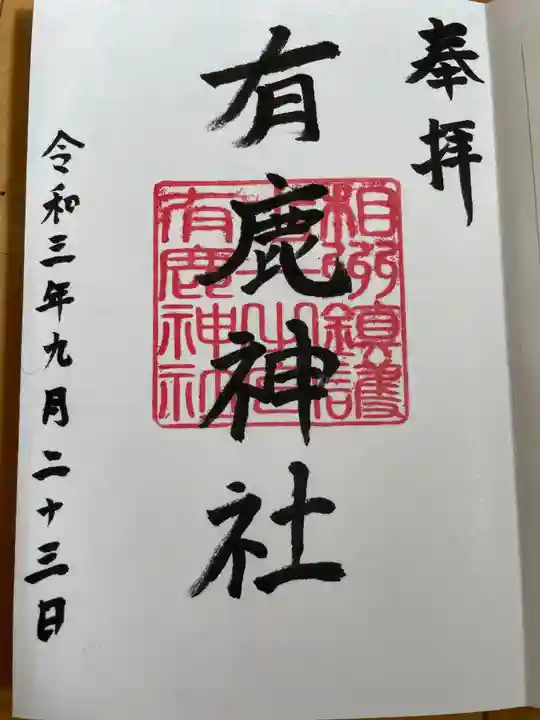 奉拝
有鹿神社
相州鎮護
有鹿神社
令和三年九月二十三日